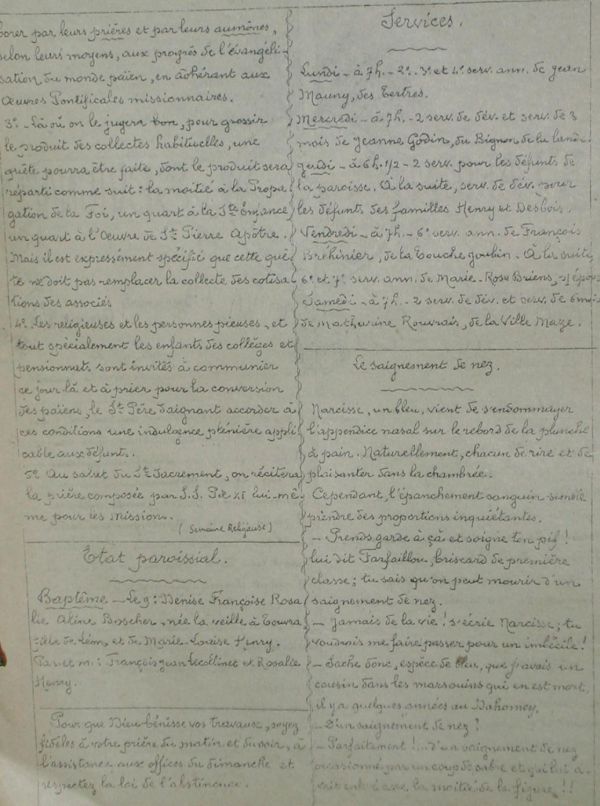 borer par leurs prières et par leurs aumônes,
selon leurs moyens, aux progrès de l'évangéli-
sation du monde païen, en adhérant aux
Œuvres Pontificales missionnaires.
3° - Là où on le jugera bon, pour grossir
le produit des collectes habituelles, une
quête pourra être faite, dont le produit sera
réparti comme suit: la moitié à la Propa
gation de la Foi, un quart à la Ste Enfance
un quart à l'Oeuvre de St Pierre Apôtre.
Mais il est expressément spécifié que cette quê
te ne doit pas remplacer la collecte des cotisa
tions des associés
4° Les religieuses et les personnes pieuses, et
tout spécialement les enfants des collèges et
pensionnats sont invités à communier
ce jour là et à prier pour la conversion
des païens, le St Père daignant accorder à
ces conditions une indulgence plénière appli
cable aux défunts.
5° Au salut du St Sacrement, on récitera
la prière composée par S.S. Pie XI lui-mê
me pour les Missions.
(Semaine Religieuse)
Etat paroissial.
Baptême - Le 9: Denise Françoise Rosa
lie Aline Boscher, née la veille à
fille de Léon, et de Marie-Louise Henry.
Par. et m.: François Jean et Rosalie
Henry.
Pour que Dieu bénisse vos travaux, soyez
fidèles à votre prière du matin et du soir, à
l'assistance aux offices du dimanche et
respectez la loi de l'abstinence.
Services.
Lundi - à 7h. - 2°. 3° et 4° serv. ann. de Jean
Mauny, des Tertres.
Mercredi - à 7h. - 2 serv. de dév. et serv. de 3
mois de Jeanne Godin, du Bignon de la lande
Jeudi - à 6h. 1/2 - 2 serv. pour les défunts de
la paroisse. A la suite, serv. de dév. pour
les défunts des familles Henry et Desbois.
Vendredi - à 7h. - 6° serv. ann. de François
Bréhinier, de la Touche goubin. - A la suite
6° et 7° serv. ann. de Marie-Rose Briens,
Samedi - à 7h. - 2 serv. de dév. et serv. de 6 mois
de Mathurine Rouvrais, de la Ville Maze.
Le saignement de nez.
Narcisse, un bleu, vient de s'endommager
l'appendice nasal sur le rebord de la planche
à pain. Naturellement, chacun de rire et de
plaisanter dans la chambrée.
Cependant l'épanchement sanguin semble
prendre des proportions inquiétantes.
- Prends garde à çà et soigne ton pif!
lui dit Farfaillou, briscard de première
classe; tu sais qu'on peut mourir d'un
saignement de nez.
- Jamais de la vie! s'écrie Narcisse; tu
voudrais me faire passer pour un imbécile!
- Sache donc, espèce de bleu, que j'avais un
cousin dans les marsouins qui en est mort,
il y a quelques années au Dahomey.
- D'un saignement de nez?
- Parfaitement!... d'un saignement de nez
occasionné par un coup de sabre et qui lui a-
vait enlevé la moitié de la figure!!